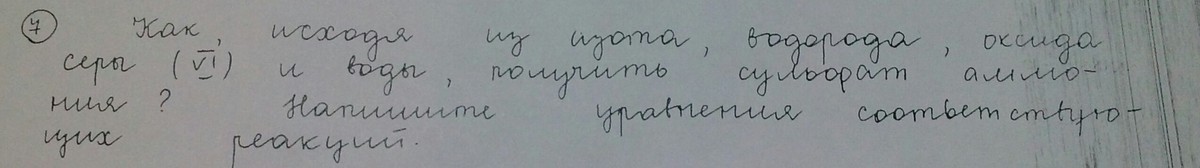 7 Как, исходя из азота, водорода, оксида
серы (VI) и воды, получить сульфат аммо-
ния? Напишите уравнения соответствую-
щих реакций.